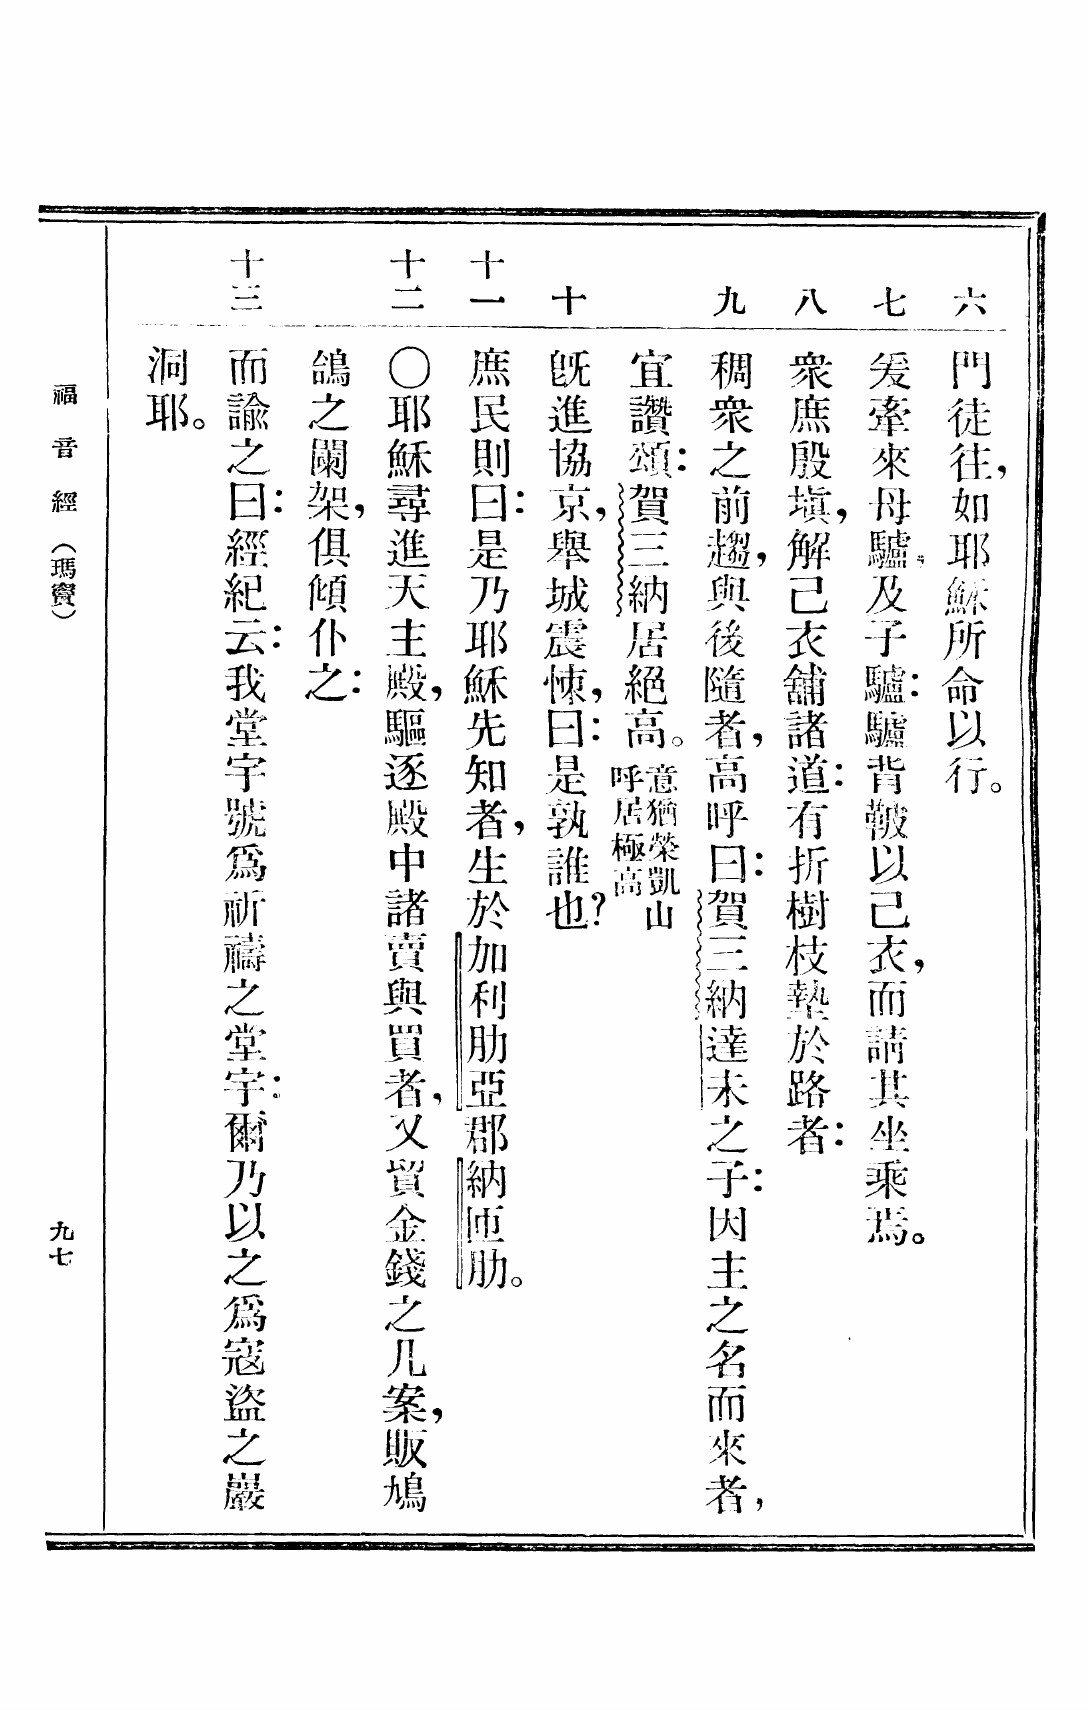 六 門徒往，如耶穌所命以行。
七 爰牽來母驢，及子驢：驢背鞁以己衣，而請其坐乘焉。
八 衆庶殷塡，解己衣舖諸道：有折樹枝墊於路者：
九 稠衆之前趨，與後隨者，高呼曰：賀三納達未之子：因主之名而來者，
宜讚頌：賀三納居絕高。意猶榮凱山呼居極高
十 旣進協京，舉城震悚，曰：是孰誰也？
十一 庶民則曰：是乃耶穌先知者，生於加利肋亞郡納匝肋。
十二 ○耶穌尋進天主殿，驅逐殿中諸賣與買者，又貿金錢之几案，販鳩
鴿之闌架，俱傾仆之：
十三 而諭之曰：經紀云：我堂宇號爲祈禱之堂宇：爾乃以之爲寇盜之巖
洞耶。
福音經（瑪竇）
九七